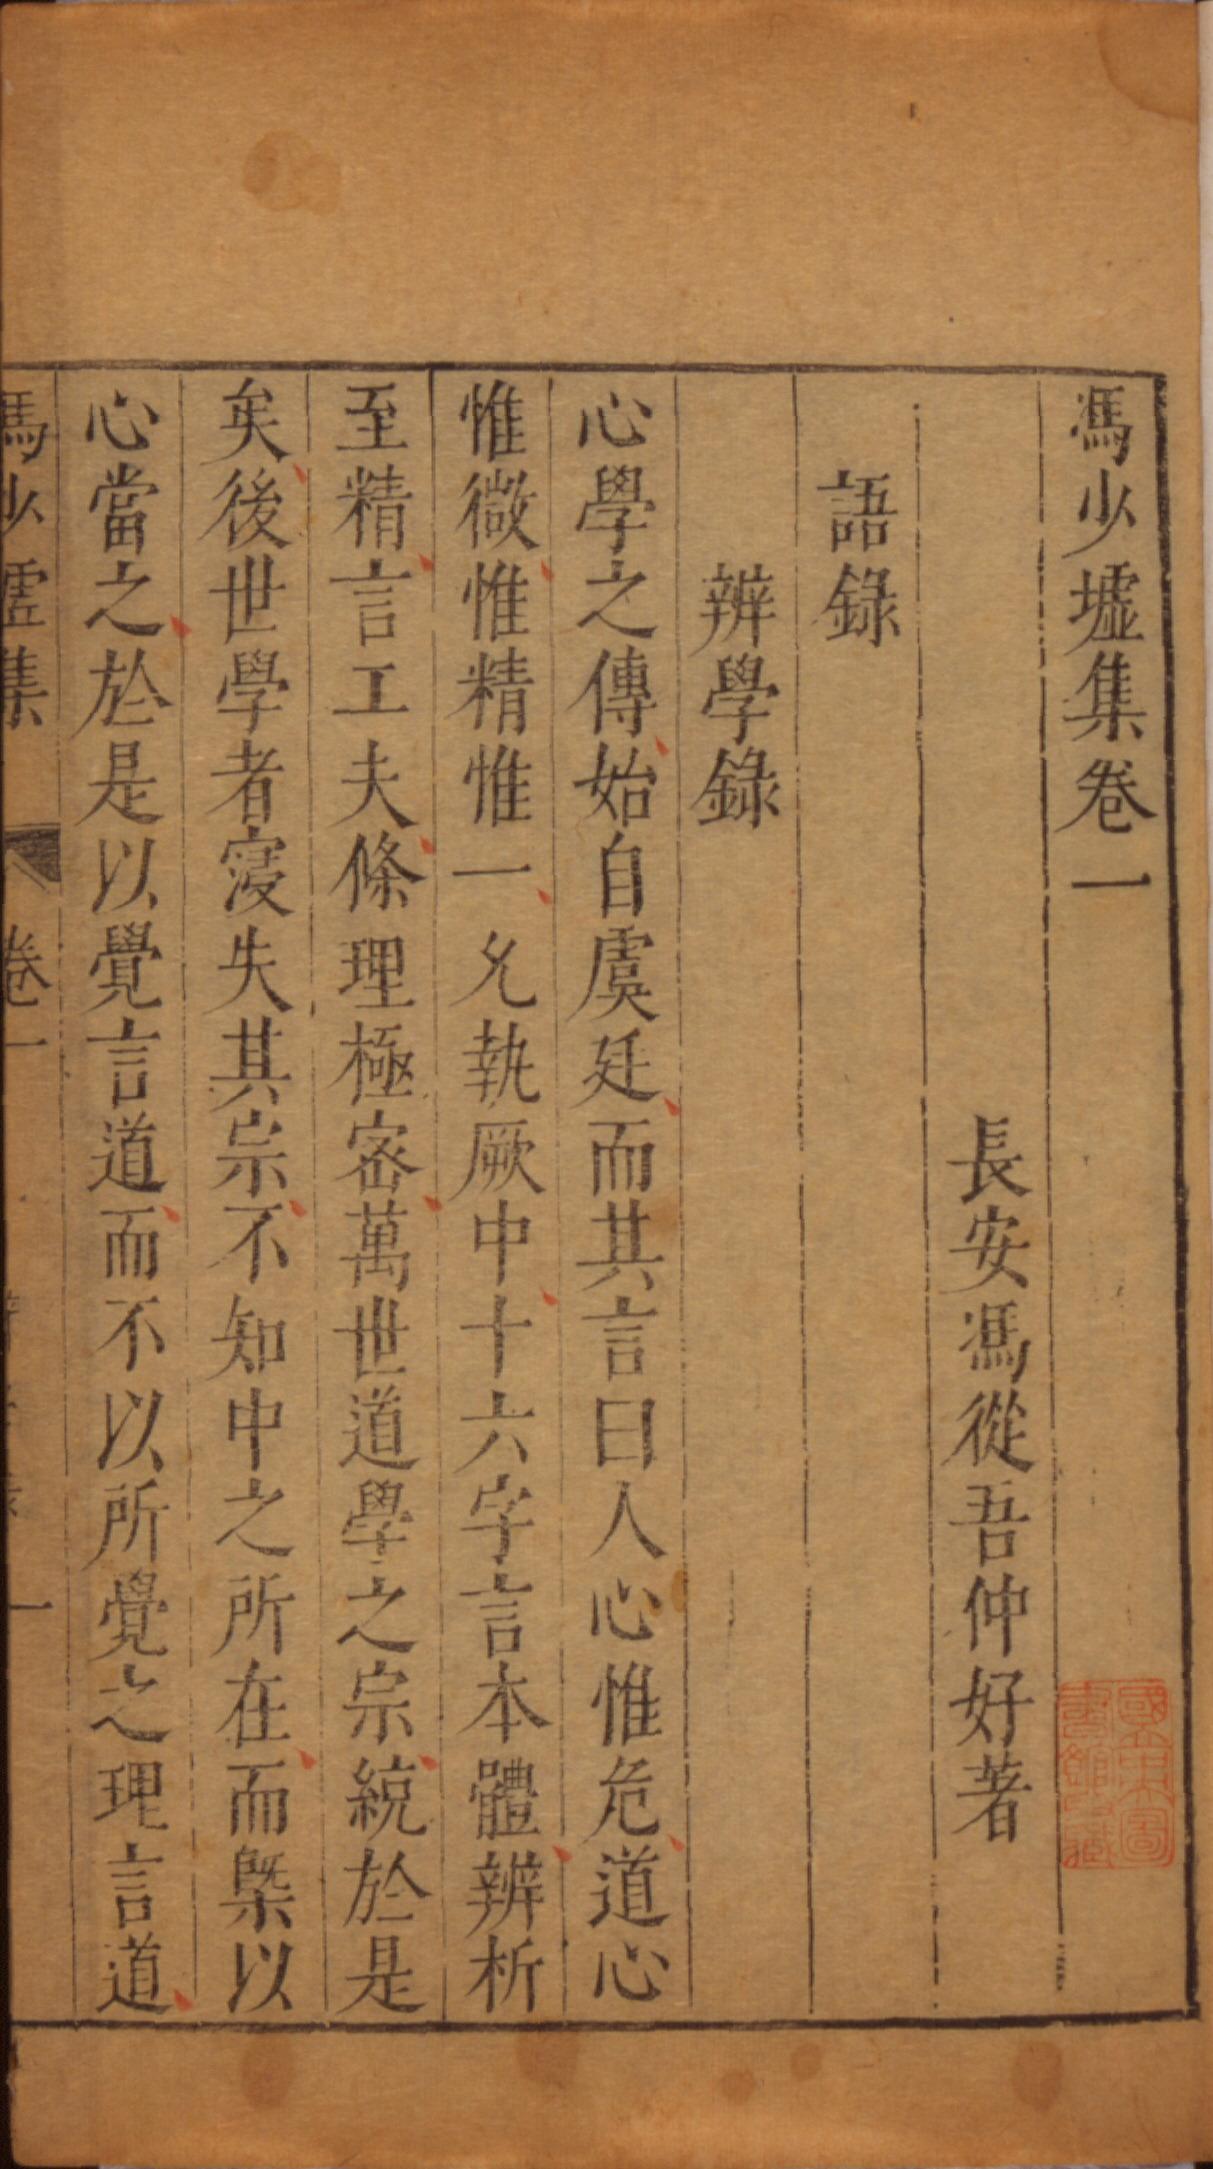 馮少墟集卷一
長安馮從吾仲好著
語錄
辨學錄
心學之傳始自虞廷而其言曰人心惟危道心
惟微惟精惟一允執厥中十六字言本體辨析
至精言工夫條理極密萬世道學之宗統於是
矣後世學者寖失其宗不知中之所在而槩以
心當之於是以覺言道而不以所覺之理言道
馮少墟集
卷一
一
國立中央圖
書館收藏